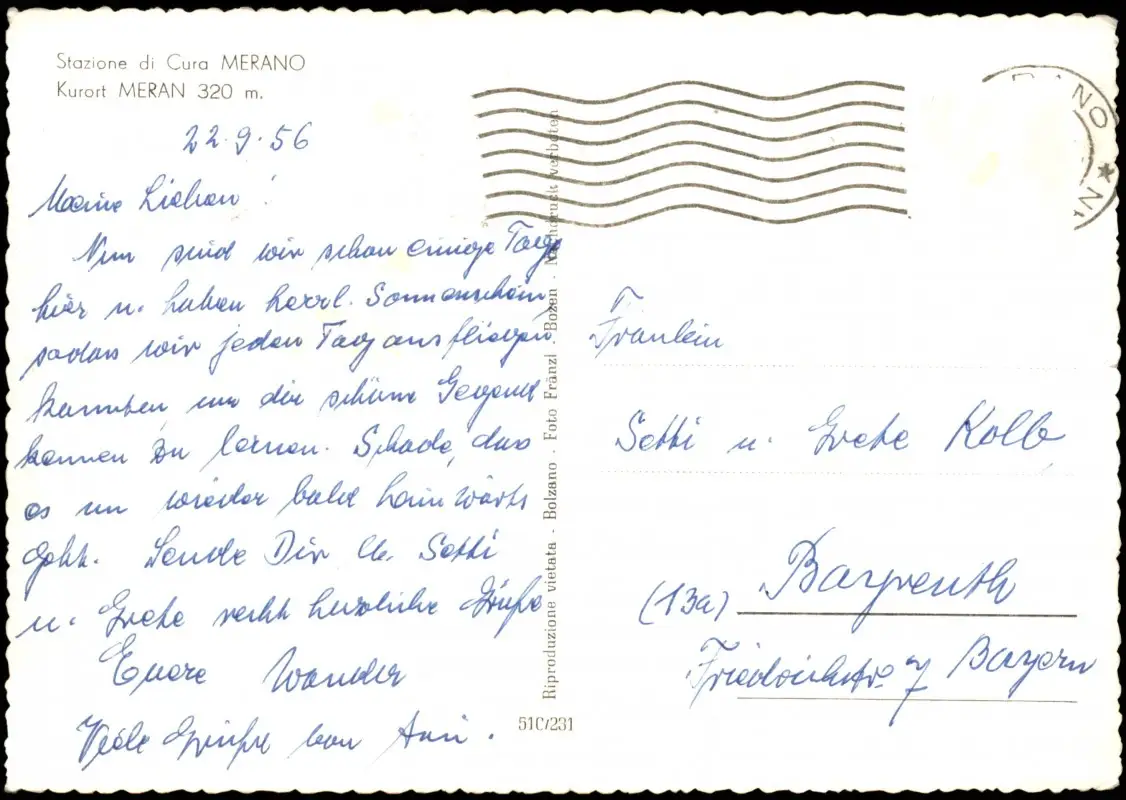 Stazione di Cura MERANO
Kurort MERAN 320 m.
22.9.56
Meine Lieben!
Nun sind wir schon einige Tage
hier u. haben herrl. Sonnenschein,
sodass wir jeden Tag ausfliegen
konnten, um die schöne Gegend
kennen zu lernen. Schade, dass
es nun wieder bald heimwärts
geht. Sende Dir lb. Setti
u. Grete recht herzliche Grüße
Euere
Viele Grüße von Ani.
Riproduzione vietata - Bolzano - Foto Fränzl - Bozen - Nachdruck verboten
51C/231
Fräulein
Setti u. Grete Kolb
(13a) Bayreuth
Friedrichstr. 7 Bayern
ANO * N